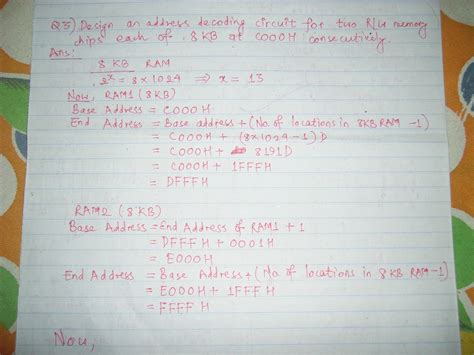 Q3) Design an address decoding circuit for two R/W memory
chips each of 8 KB at C000H consecutively.
Ans:
8 KB RAM
2^x = 8 x 1024 ⇒ x = 13
Now, RAM1 (8KB)
Base Address = C000H
End Address = Base address + (No. of locations in 8KB RAM - 1)
= C000H + (8x1024-1) D
= C000H + 8191D
= C000H + 1FFFH
= DFFFH
RAM2 (8 KB)
Base Address = End Address of RAM1 + 1
= DFFFH + 0001H
= E000H
End Address = Base Address + (No. of locations in 8 KB RAM - 1)
= E000H + 1FFFH
= FFFFH
Now,